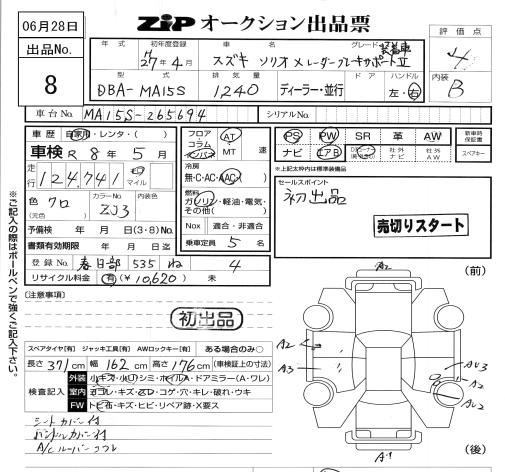 06月28日
ZIP オークション出品票
出品No.
8
年式 初年度登録 車名 グレード 装着車
H27年4月 スズキ ソリオ X レーダーブレーキサポート
型式 排気量 ディーラー・並行 ドア ハンドル
DBA-MA15S 1,240 左・右
評価点
4
内装
B
車台No. MA15S-265694 シリアルNo.
車歴 自家用・レンタ・( )
車検 R 8年 5月
走行 124,741 キロ マイル
色 クロ カラーNo. ZJ3 内装色
(元色)
予備検 年 月 日(3・8)No.
書類有効期限 年 月 日迄
登録No. 春日部 535 ね 4
リサイクル料金 有(¥10,620) 未
フロア コラム インパネ AT MT 速
冷房
無・C・AC・AAC
燃料
ガソリン・軽油・電気・その他( )
Nox 適合・非適合
乗車定員 5 名
PS PW SR 革 AW 新車時保証書
ナビ エアB 社外ナビ 社外AW スペアキー
※上記太枠内は標準装備品
セールスポイント
初出品
売切りスタート
※ご記入の際はボールペンで強くご記入下さい。
[注意事項]
初出品
スペアタイヤ[有] ジャッキ工具[有] AWロックキー[有] ある場合のみ○
長さ 371cm 幅 162cm 高さ 176cm (車検証上の寸法)
検査記入
外装 小キズ・小凹・シミ・ホイルA・ドアミラー(A・ワレ)
室内 ヨゴレ・キズ・スレ・コゲ・穴・キレ・破れ・ウキ
FW トビ石・キズ・ヒビ・リペア跡・X要ス
シートカバー付
ハンドルカバー付
A/Cルーバーコワレ
(前)
A2
A2
A3
AU3
A2
AU2
A1
(後)